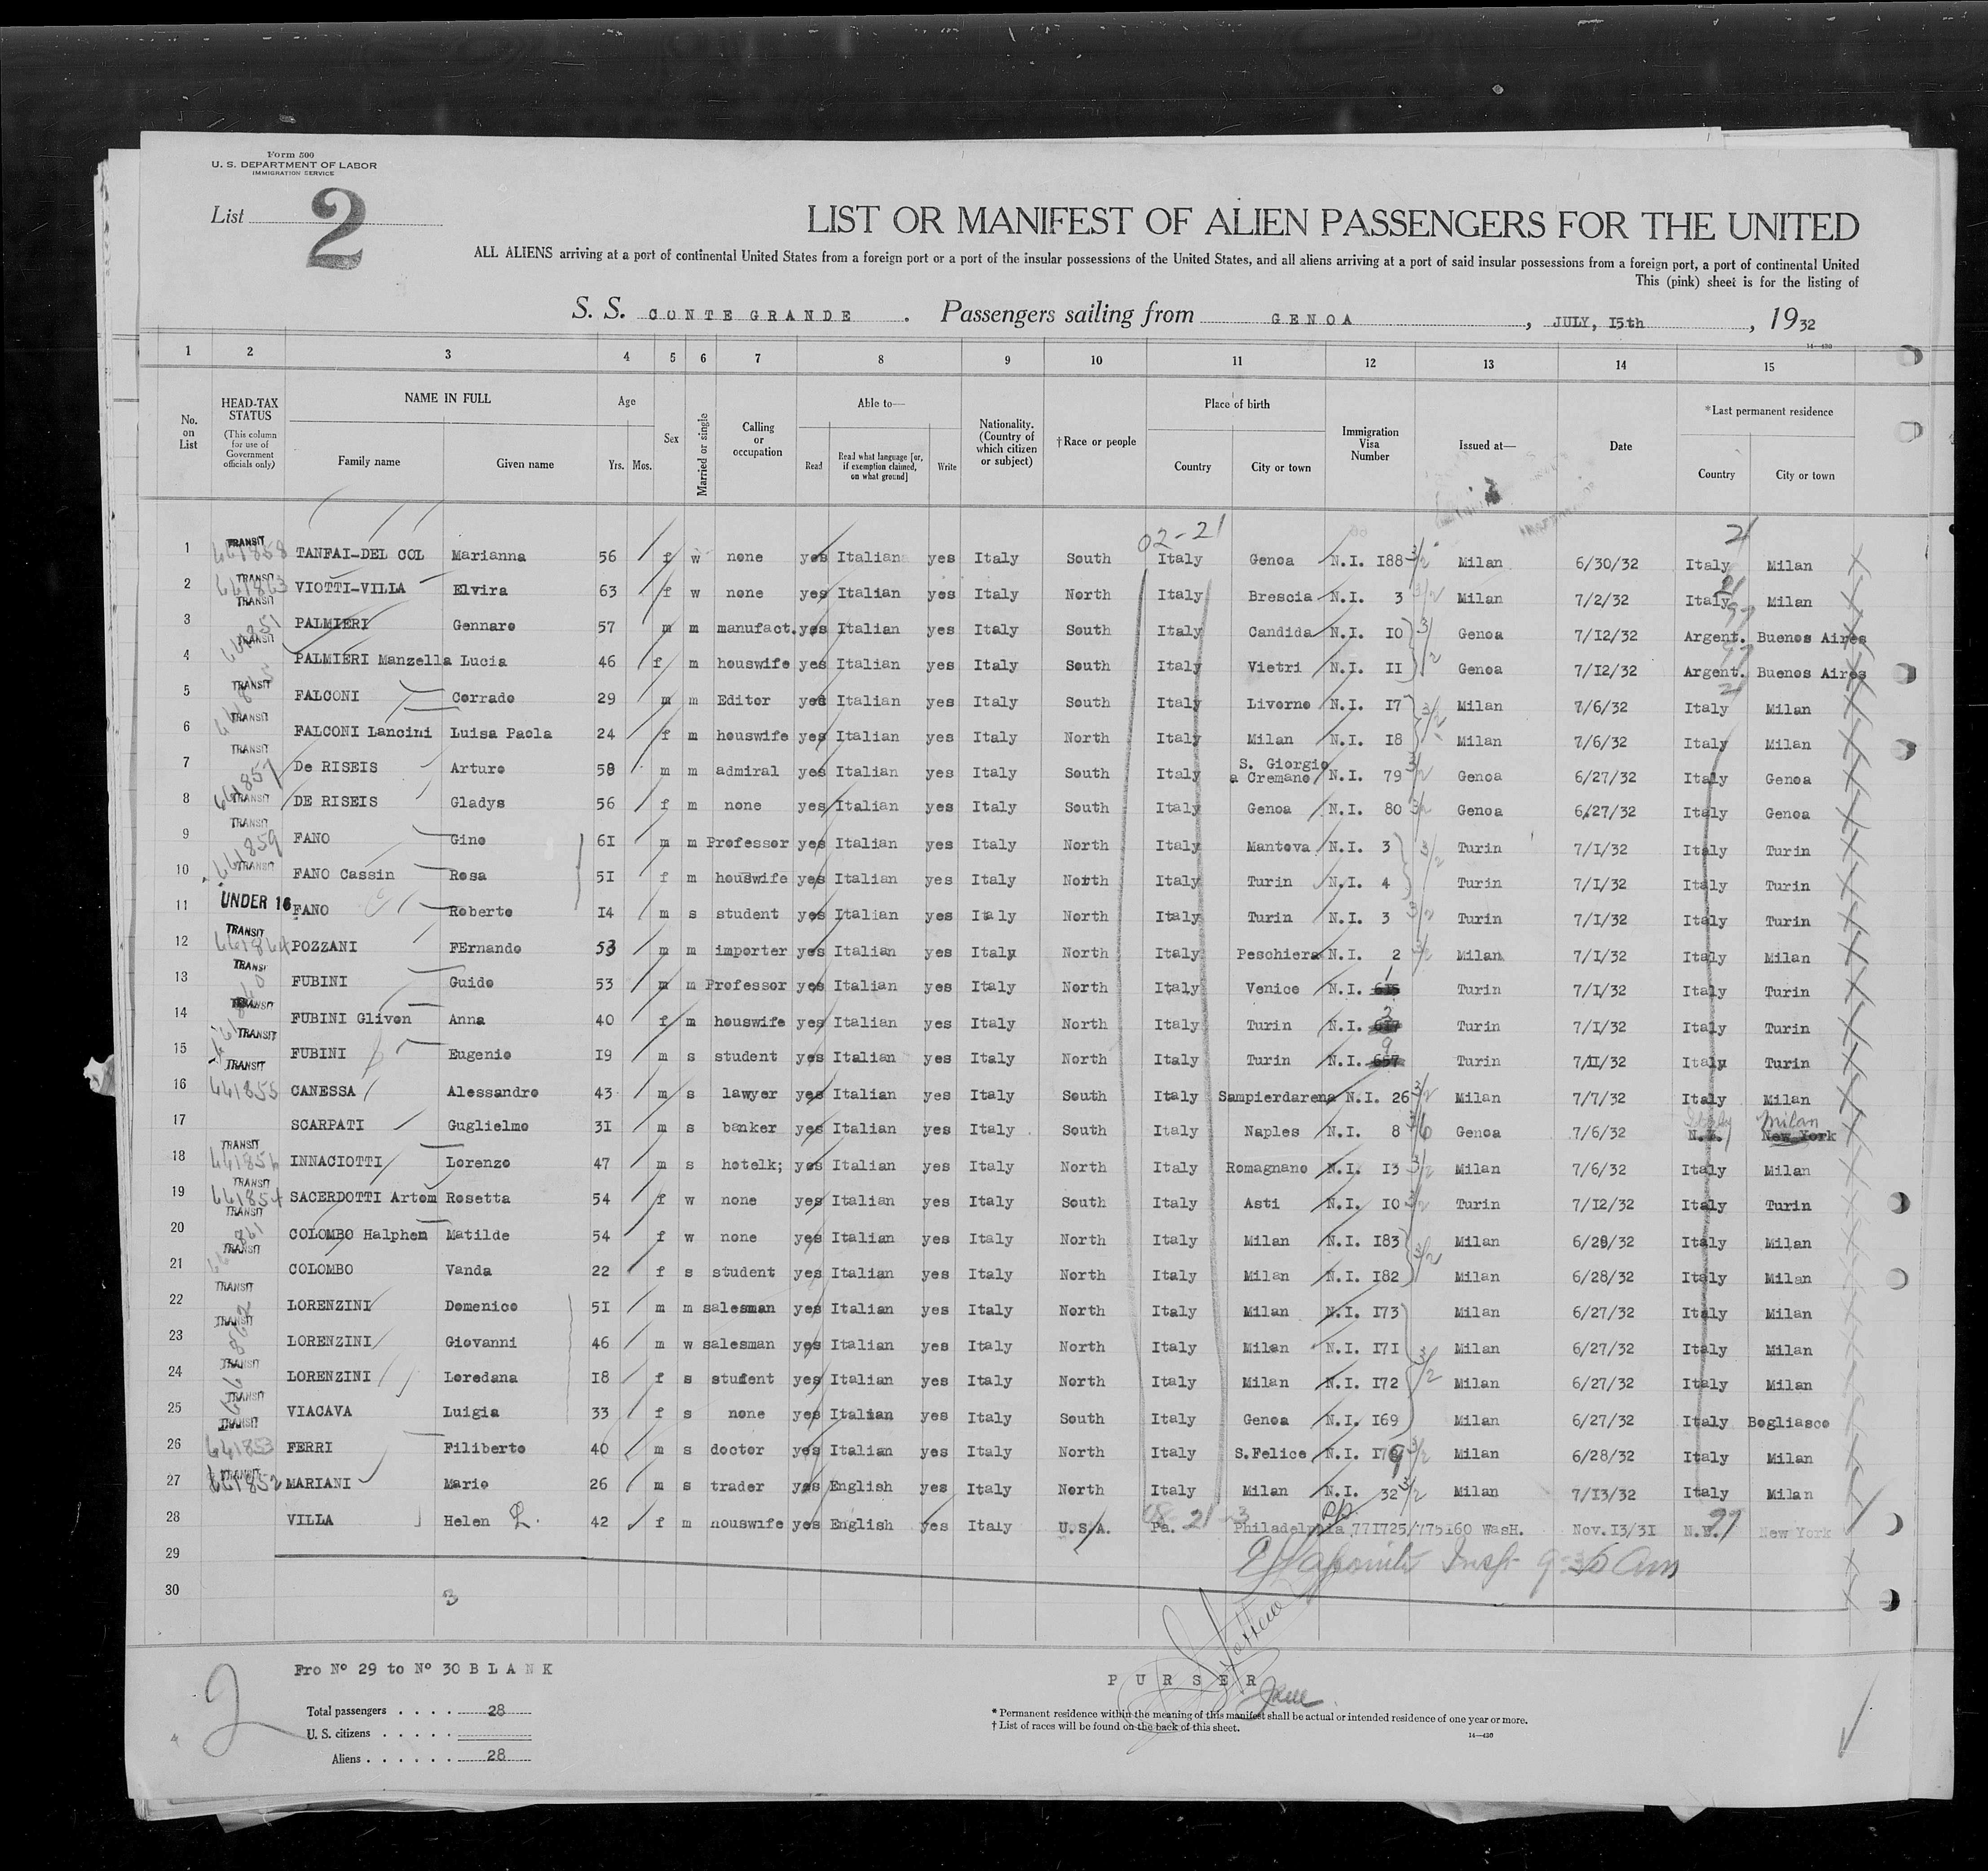 Form 500
U. S. DEPARTMENT OF LABOR
IMMIGRATION SERVICE
List 2
LIST OR MANIFEST OF ALIEN PASSENGERS FOR THE UNITED
ALL ALIENS arriving at a port of continental United States from a foreign port or a port of the insular possessions of the United States, and all aliens arriving at a port of said insular possessions from a foreign port, a port of continental United
This (pink) sheet is for the listing of
S. S. CONTE GRANDE . Passengers sailing from GENOA , JULY, I5th , 1932
14—430
1 2 3 4 5 6 7 8 9 10 11 12 13 14 15
No. on List
HEAD-TAX STATUS (This column for use of Government officials only)
NAME IN FULL
Family name Given name
Age
Yrs. Mos.
Sex
Married or single
Calling or occupation
Able to—
Read Read what language [or, if exemption claimed, on what ground] Write
Nationality. (Country of which citizen or subject)
†Race or people
Place of birth
Country City or town
Immigration Visa Number
Issued at—
Date
*Last permanent residence
Country City or town
02-21 21
1 TRANSIT 441858 TANFAI-DEL COL Marianna 56 f w none yes Italian yes Italy South Italy Genoa N.I. I88 3/2 Milan 6/30/32 Italy Milan
2 TRANSIT 441863 VIOTTI-VILLA Elvira 63 f w none yes Italian yes Italy North Italy Brescia N.I. 3 3/2 Milan 7/2/32 Italy Milan
3 TRANSIT PALMIERI Gennaro 57 m m manufact. yes Italian yes Italy South Italy Candida N.I. I0 3/2 Genoa 7/I2/32 Argent. Buenos Aires
4 TRANSIT PALMIERI Manzella Lucia 46 f m houswife yes Italian yes Italy South Italy Vietri N.I. II Genoa 7/I2/32 Argent. Buenos Aires
5 TRANSIT FALCONI Corrado 29 m m Editor yes Italian yes Italy South Italy Livorno N.I. I7 3/2 Milan 7/6/32 Italy Milan
6 TRANSIT FALCONI Lancini Luisa Paola 24 f m houswife yes Italian yes Italy North Italy Milan N.I. I8 Milan 7/6/32 Italy Milan
7 TRANSIT De RISEIS Arturo 58 m m admiral yes Italian yes Italy South Italy S. Giorgio a Cremano N.I. 79 3/2 Genoa 6/27/32 Italy Genoa
8 441857 TRANSIT DE RISEIS Gladys 56 f m none yes Italian yes Italy South Italy Genoa N.I. 80 3/2 Genoa 6/27/32 Italy Genoa
9 TRANSIT FANO Gino 6I m m Professor yes Italian yes Italy North Italy Mantova N.I. 3 3/2 Turin 7/I/32 Italy Turin
10 441859 TRANSIT FANO Cassin Rosa 5I f m houswife yes Italian yes Italy North Italy Turin N.I. 4 Turin 7/I/32 Italy Turin
11 UNDER 16 FANO Roberto I4 m s student yes Italian yes Italy North Italy Turin N.I. 3 3/2 Turin 7/I/32 Italy Turin
12 TRANSIT 441864 POZZANI FErnando 53 m m importer yes Italian yes Italy North Italy Peschiera N.I. 2 3/2 Milan 7/I/32 Italy Milan
13 TRANSIT FUBINI Guido 53 m m Professor yes Italian yes Italy North Italy Venice N.I. 1 Turin 7/I/32 Italy Turin
14 TRANSIT FUBINI Gliven Anna 40 f m houswife yes Italian yes Italy North Italy Turin N.I. 2 Turin 7/I/32 Italy Turin
15 TRANSIT FUBINI Eugenio I9 m s student yes Italian yes Italy North Italy Turin N.I. 9 657 Turin 7/II/32 Italy Turin
16 TRANSIT 441855 CANESSA Alessandro 43 m s lawyer yes Italian yes Italy South Italy Sampierdarena N.I. 26 3/2 Milan 7/7/32 Italy Milan
17 SCARPATI Guglielmo 3I m s banker yes Italian yes Italy South Italy Naples N.I. 8 3/6 Genoa 7/6/32 Italy N.Y. Milan New York
18 TRANSIT INNACIOTTI Lorenzo 47 m s hotelk; yes Italian yes Italy North Italy Romagnano N.I. I3 3/2 Milan 7/6/32 Italy Milan
19 TRANSIT 441854 SACERDOTTI Artom Rosetta 54 f w none yes Italian yes Italy South Italy Asti N.I. I0 3/2 Turin 7/I2/32 Italy Turin
20 TRANSIT COLOMBO Halphen Matilde 54 f w none yes Italian yes Italy North Italy Milan N.I. I83 3/2 Milan 6/28/32 Italy Milan
21 TRANSIT COLOMBO Vanda 22 f s student yes Italian yes Italy North Italy Milan N.I. I82 Milan 6/28/32 Italy Milan
22 TRANSIT LORENZINI Domenico 5I m m salesman yes Italian yes Italy North Italy Milan N.I. I73 Milan 6/27/32 Italy Milan
23 TRANSIT LORENZINI Giovanni 46 m w salesman yes Italian yes Italy North Italy Milan N.I. I7I 3/2 Milan 6/27/32 Italy Milan
24 TRANSIT LORENZINI Loredana I8 f s stufent yes Italian yes Italy North Italy Milan N.I. I72 Milan 6/27/32 Italy Milan
25 TRANSIT VIACAVA Luigia 33 f s none yes Italian yes Italy South Italy Genoa N.I. I69 Milan 6/27/32 Italy Bogliasco
26 TRANSIT 441853 FERRI Filiberto 40 m s doctor yes Italian yes Italy North Italy S.Felice N.I. I79 3/2 Milan 6/28/32 Italy Milan
27 TRANSIT 441852 MARIANI Mario 26 m s trader yes English yes Italy North Italy Milan N.I. 32 3/2 Milan 7/I3/32 Italy Milan
28 VILLA Helen L. 42 f m houswife yes English yes Italy U.S.A. Pa. 21 Philadelphia 77I725/775I60 WasH. Nov.I3/3I N.Y. New York
29
30 3
Fro Nº 29 to Nº 30 BLANK
Total passengers 28
U. S. citizens
Aliens 28
2
PURSER
* Permanent residence within the meaning of this manifest shall be actual or intended residence of one year or more.
† List of races will be found on the back of this sheet.
14—430